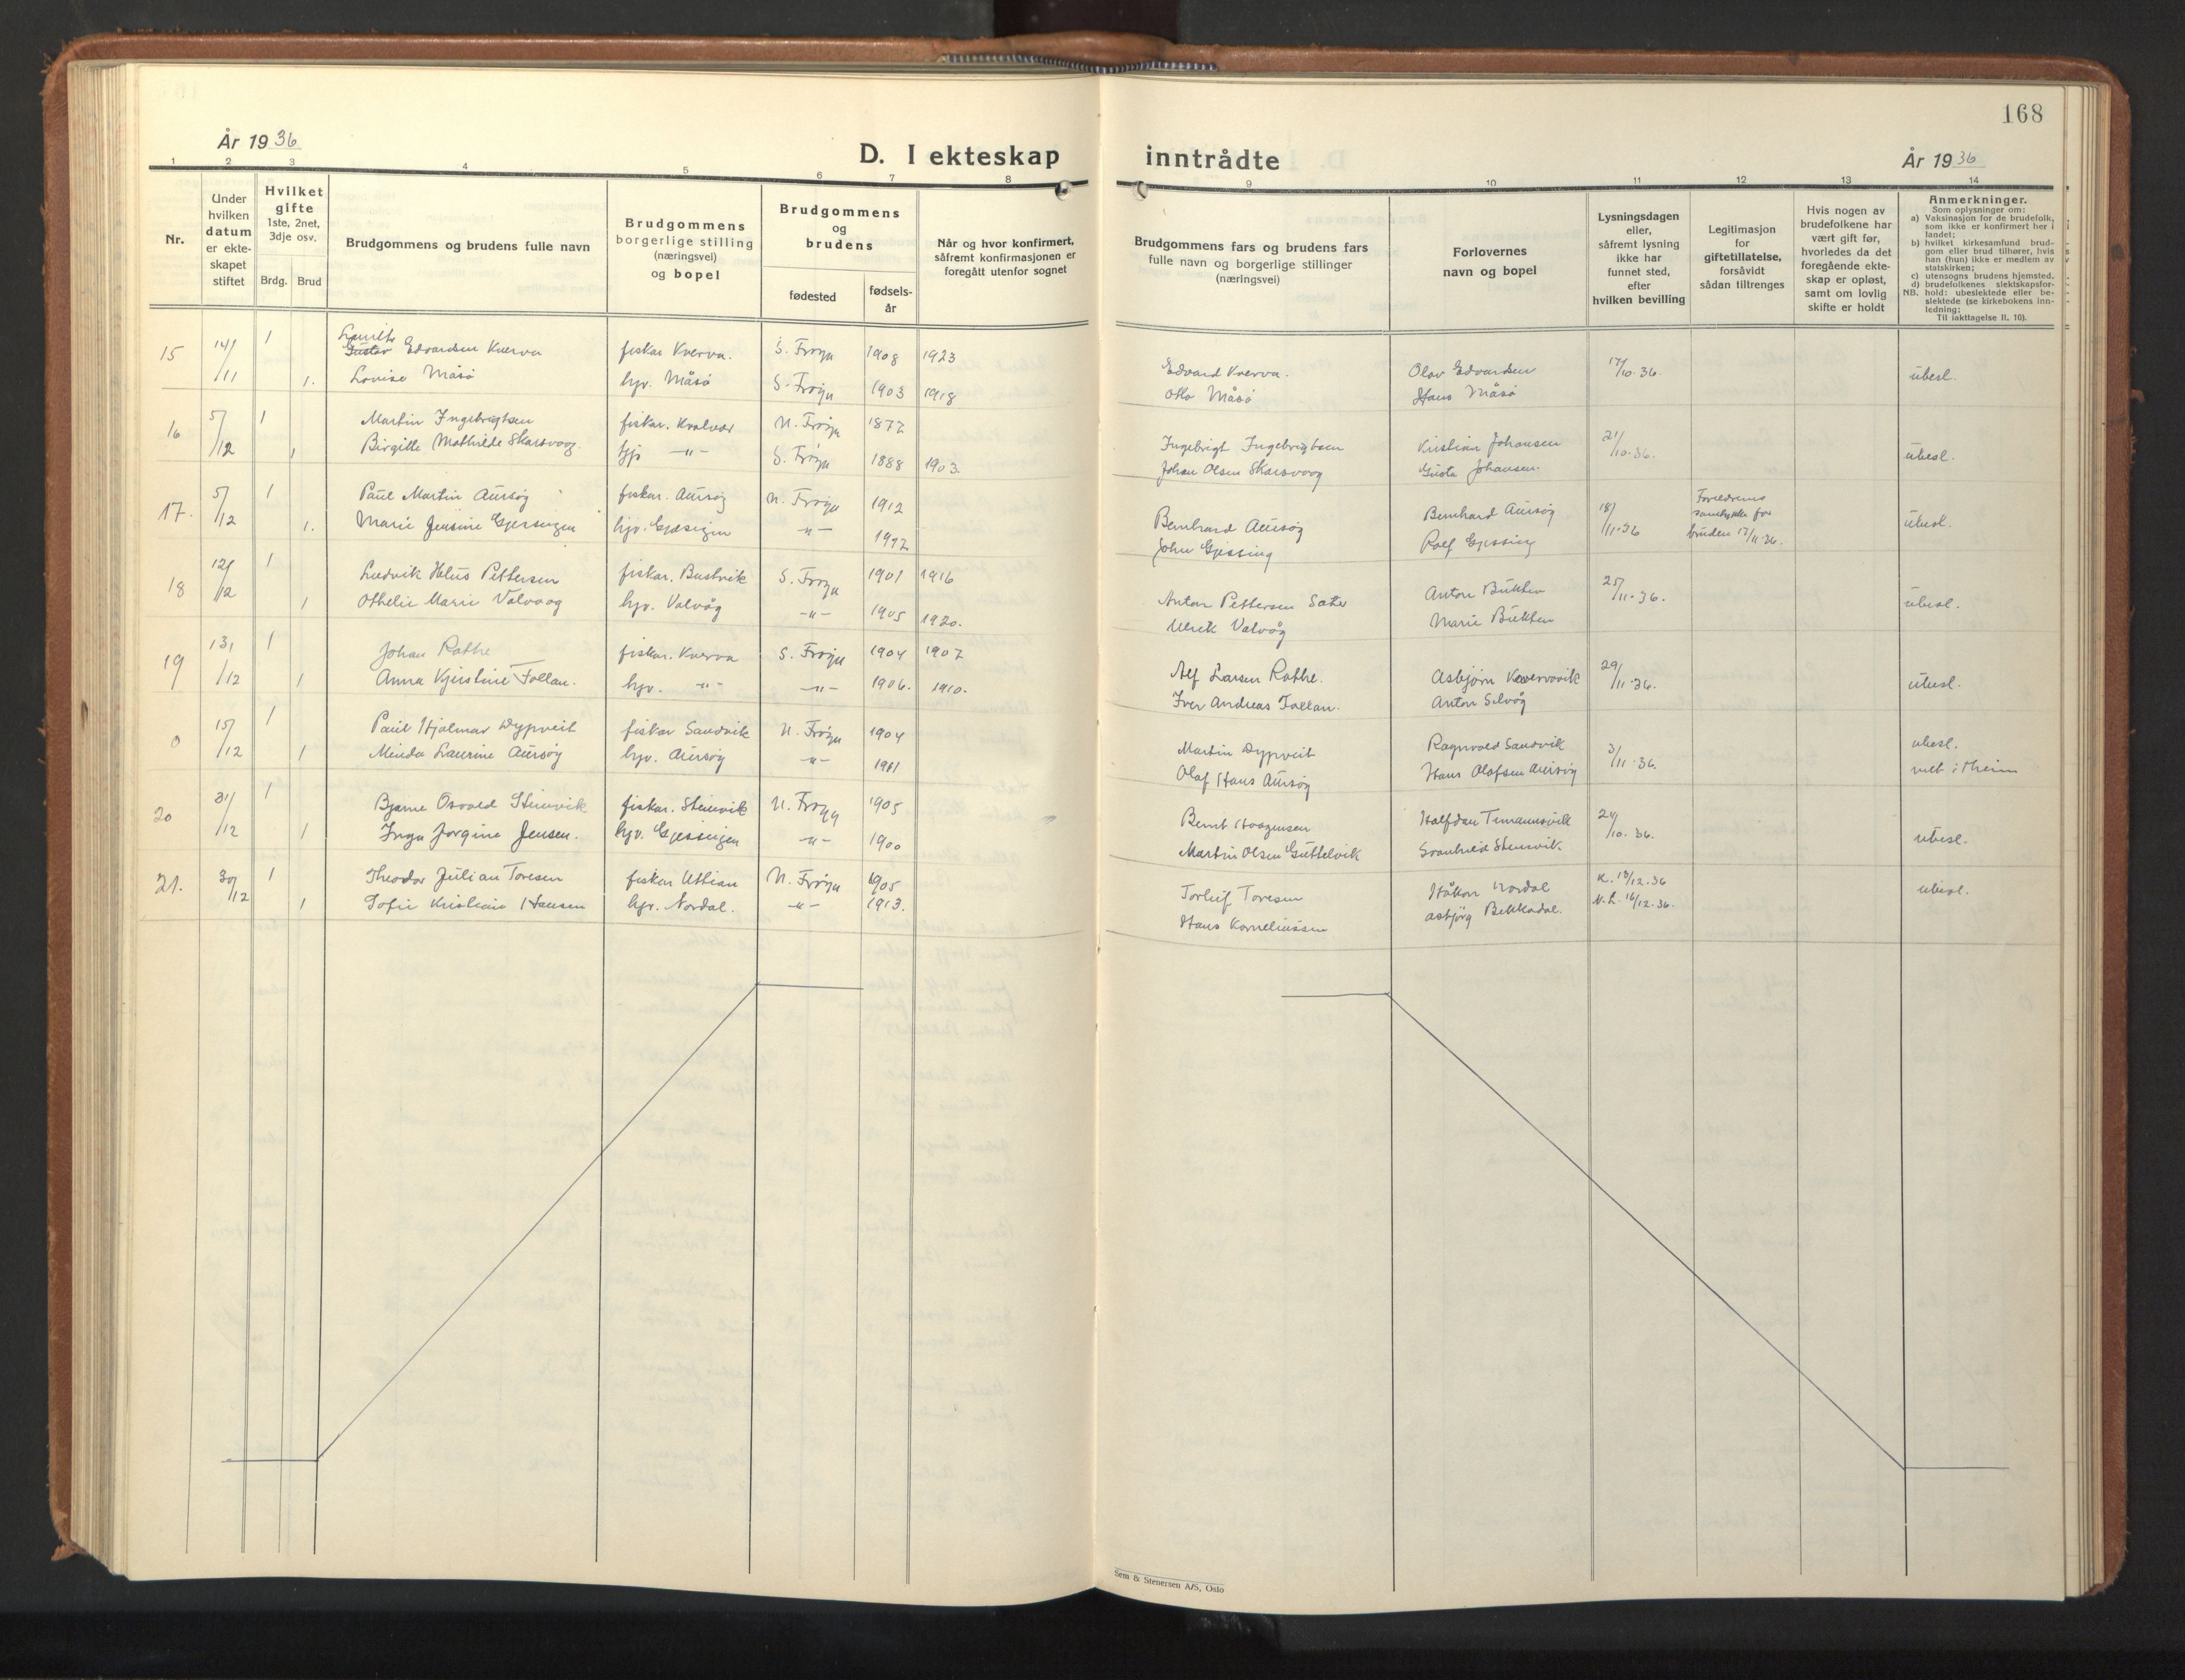 168
År 1936
D. I ekteskap inntrådte
År 1936
1 2 3 4 5 6 7 8 9 10 11 12 13 14
Nr.
Under
hvilken
datum
er ekte-
skapet
stiftet
Hvilket
gifte
1ste, 2net,
3dje osv.
Brdg. Brud
Brudgommens og brudens fulle navn
Brudgommens
borgerlige stilling
(næringsvei)
og bopel
Brudgommens
og
brudens
fødested
fødsels-
år
Når og hvor konfirmert,
såfremt konfirmasjonen er
foregått utenfor sognet
Brudgommens fars og brudens fars
fulle navn og borgerlige stillinger
(næringsvei)
Forlovernes
navn og bopel
Lysningsdagen
eller,
såfremt lysning
ikke har
funnet sted,
efter
hvilken bevilling
Legitimasjon
for
giftetillatelse,
forsåvidt
sådan tiltrenges
Hvis nogen av
brudefolkene har
vært gift før,
hvorledes da det
foregående ekte-
skap er opløst,
samt om lovlig
skifte er holdt
Anmerkninger.
Som oplysninger om:
a) Vaksinasjon for de brudefolk,
som ikke er konfirmert her i
landet;
b) hvilket kirkesamfund brud-
gom eller brud tilhører, hvis
han (hun) ikke er medlem av
statskirken;
c) utensogns brudens hjemsted.
d) brudefolkenes slektskapsfor-
NB. hold: ubeslektede eller be-
slektede (se kirkebokens inn-
ledning;
Til iakttagelse II. 10).
15 14/11 1 Gustav Edvardsen Kverva fisker Kverva. S. Frøya 1908 1923 Edvard Kverva. Olav Edvardsen 17/10.36. ubesl.
1. Lovise Måsø hjv. Måsø S. Frøya 1903 1918 Otto Måsø Hans Måsø
16 5/12 1 Martin Ingebrigtsen fisker. Kvalvær N. Frøya 1877 Ingebrigt Ingebrigtsen Kristian Johansen 21/10.36. ubesl.
1 Birgitte Mathilde Skarsvaag. -"- S. Frøya 1888 1903. Johan Olsen Skarsvaag Gusta Johansen.
17. 5/12 1 Paul Martin Aursøy fisker. Aursøy N. Frøya 1912 Bernhard Aursøy Bernhard Aursøy 18/11.36 Foreldrenes
samtykke for
bruden 17/11.36. ubesl.
1. Marie Jensine Gjessingen hjv. Gjæsingen -"- John Gjessing Rolf Gjessing
18 12/12 1 Ludvik Pettersen fisker. Bustvik S. Frøya 1901 1916 Anton Pettersen Sæter Anton 25/11.36. ubesl.
1 Othelie Marie Valvaag hjv. Valvåg -"- 1905 1920. Ulrik Valvåg Marie
19 13/12 1 Johan Rathe fisker. Kverva S. Frøya 1904 1907 Alf Larsen Rathe. Asbjørn 29/11.36. ubesl.
1 Anna Kjerstine Follan. hjv. -"- -"- 1906. 1910. Iver Andreas Follan. Anton Selvåg
0 15/12 1 Paul Hjalmar Dypveit fisker Sandvik N. Frøya 1904 Martin Dypveit Ragnvald Sandvik 3/11.36. ubesl.
1 Minda Laurine Aursøy hjv. Aursøy -"- Olaf Hans Aursøy Hans Olafsen Aursøy
20 31/12 1 Bjarne Osvald Stensvik fisker. Stensvik N. Frøya 1905 Bernt Haagensen Halfdan 24/10.36. ubesl.
1 Inga Jorgine Jensen. hjv. Gjessingen -"- 1900 Martin Olsen Guttelvik Svanhild Stensvik.
21. 30/12 1 Theodor Julian Toresen fisker Uttian N. Frøya 1905 Torleif Toresen Håkon Nordal K. 13/12.36 ubesl.
1 Sofie Kristiane Hansen hjv. Nordal. -"- 1913. Hans Korneliussen Asbjørg Bekkadal. N.h. 16/12.36.
Sem & Stenersen A/S, Oslo